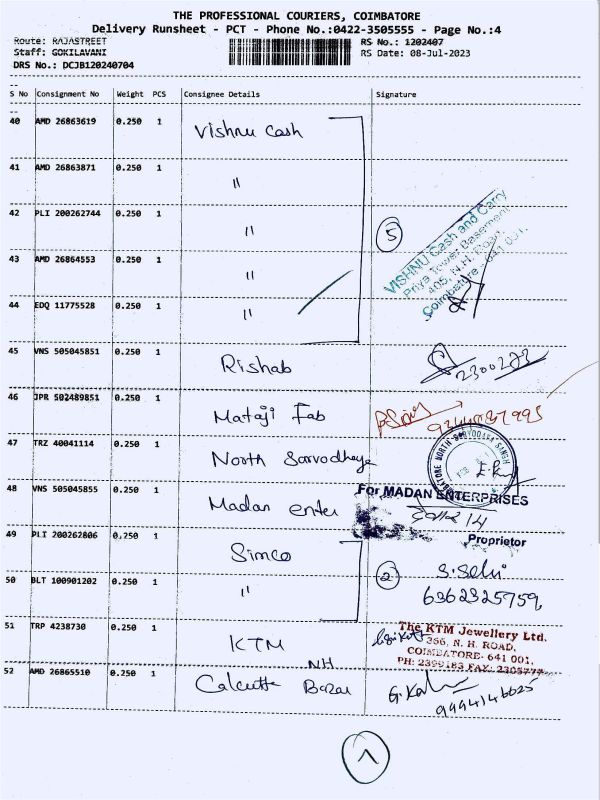 THE PROFESSIONAL COURIERS, COIMBATORE
Delivery Runsheet - PCT - Phone No.:0422-3505555 - Page No.:4
Route: RAJASTREET RS No.: 1202407
Staff: GOKILAVANI RS Date: 08-Jul-2023
DRS No.: DCJB120240704
S No Consignment No Weight PCS Consignee Details Signature
40 AMD 26863619 0.250 1 Vishnu Cash
41 AMD 26863871 0.250 1 "
42 PLI 200262744 0.250 1 " 5
43 AMD 26864553 0.250 1 "
44 EDQ 11775528 0.250 1 "
VISHNU Cash and Carry
Priya Tower Basement
405, N.H. Road,
Coimbatore - 641 001.
45 VNS 505045851 0.250 1 Rishab 2300273
46 JPR 502489851 0.250 1 Mataji Fab
47 TRZ 40041114 0.250 1 North Sarvodhaya
48 VNS 505045855 0.250 1 Madan enter
For MADAN ENTERPRISES
Proprietor
49 PLI 200262806 0.250 1 Simco
50 BLT 100901202 0.250 1 " 2 S.Selvi
6362325759
51 TRP 4238730 0.250 1 KTM
The KTM Jewellery Ltd.
366, N. H. ROAD,
COIMBATORE- 641 001.
PH: 2399183 FAX: 2305777
52 AMD 26865510 0.250 1 Calcutta NH Bazar